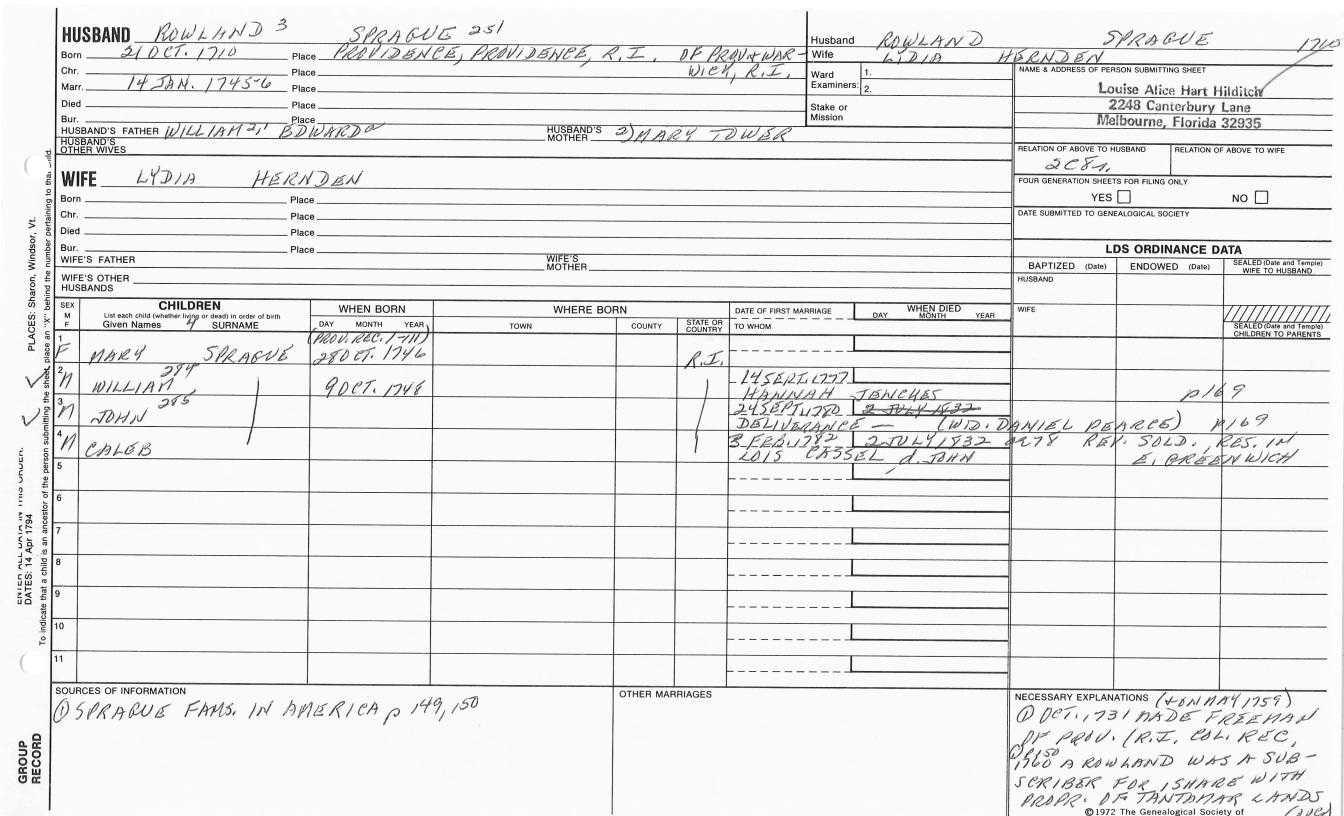 HUSBAND ROWLAND 3 SPRAGUE 251
Born 21 OCT. 1710 Place PROVIDENCE, PROVIDENCE, R.I. OF PROV & WAR-
Chr. Place WICK, R.I.
Marr. 14 JAN. 1745-6 Place
Died Place
Bur. Place
HUSBAND'S FATHER WILLIAM 2,1 EDWARD a HUSBAND'S MOTHER 2) MARY TOWER
HUSBAND'S OTHER WIVES
Husband ROWLAND SPRAGUE 1710
Wife LYDIA HERNDEN
Ward Examiners: 1.
2.
Stake or Mission
NAME & ADDRESS OF PERSON SUBMITTING SHEET
Louise Alice Hart Hilditch
2248 Canterbury Lane
Melbourne, Florida 32935
RELATION OF ABOVE TO HUSBAND RELATION OF ABOVE TO WIFE
2C8r.
FOUR GENERATION SHEETS FOR FILING ONLY
YES NO
DATE SUBMITTED TO GENEALOGICAL SOCIETY
WIFE LYDIA HERNDEN
Born Place
Chr. Place
Died Place
Bur. Place
WIFE'S FATHER WIFE'S MOTHER
WIFE'S OTHER HUSBANDS
LDS ORDINANCE DATA
BAPTIZED (Date) ENDOWED (Date) SEALED (Date and Temple) WIFE TO HUSBAND
HUSBAND
WIFE
SEALED (Date and Temple) CHILDREN TO PARENTS
SEX M F
CHILDREN
List each child (whether living or dead) in order of birth
Given Names 4 SURNAME
WHEN BORN
DAY MONTH YEAR
WHERE BORN
TOWN COUNTY STATE OR COUNTRY
DATE OF FIRST MARRIAGE
TO WHOM
WHEN DIED
DAY MONTH YEAR
(PROV. REC. 1-111)
1 F MARY SPRAGUE 28 OCT. 1746 R.I.
2 M WILLIAM 284 9 OCT. 1748 14 SEPT. 1777
HANNAH JENCHES p169
3 M JOHN 285 24 SEPT. 1780 2 JULY 1832
DELIVERANCE — (WID. DANIEL PEARCE) p169
4 M CALEB 3 FEB. 1782 2 JULY 1832 at 78 REV. SOLD., RES. IN
LOIS CASSEL d. JOHN E. GREENWICH
5
6
7
8
9
10
11
SOURCES OF INFORMATION
① SPRAGUE FAMS. IN AMERICA p 149, 150
OTHER MARRIAGES
NECESSARY EXPLANATIONS (+ ON MAY 1759)
① OCT. 1731 MADE FREEMAN
OF PROV. (R.I. COL. REC.
① p150
1760 A ROWLAND WAS A SUB-
SCRIBER FOR 1 SHARE WITH
PROPR. OF TANTAMAR LANDS
©1972 The Genealogical Society of
PLACES: Sharon, Windsor, Vt.
ENTER ALL DATA IN THIS ORDER:
DATES: 14 Apr 1794
To indicate that a child is an ancestor of the person submitting the sheet, place an "X" behind the number pertaining to that child.
GROUP
RECORD